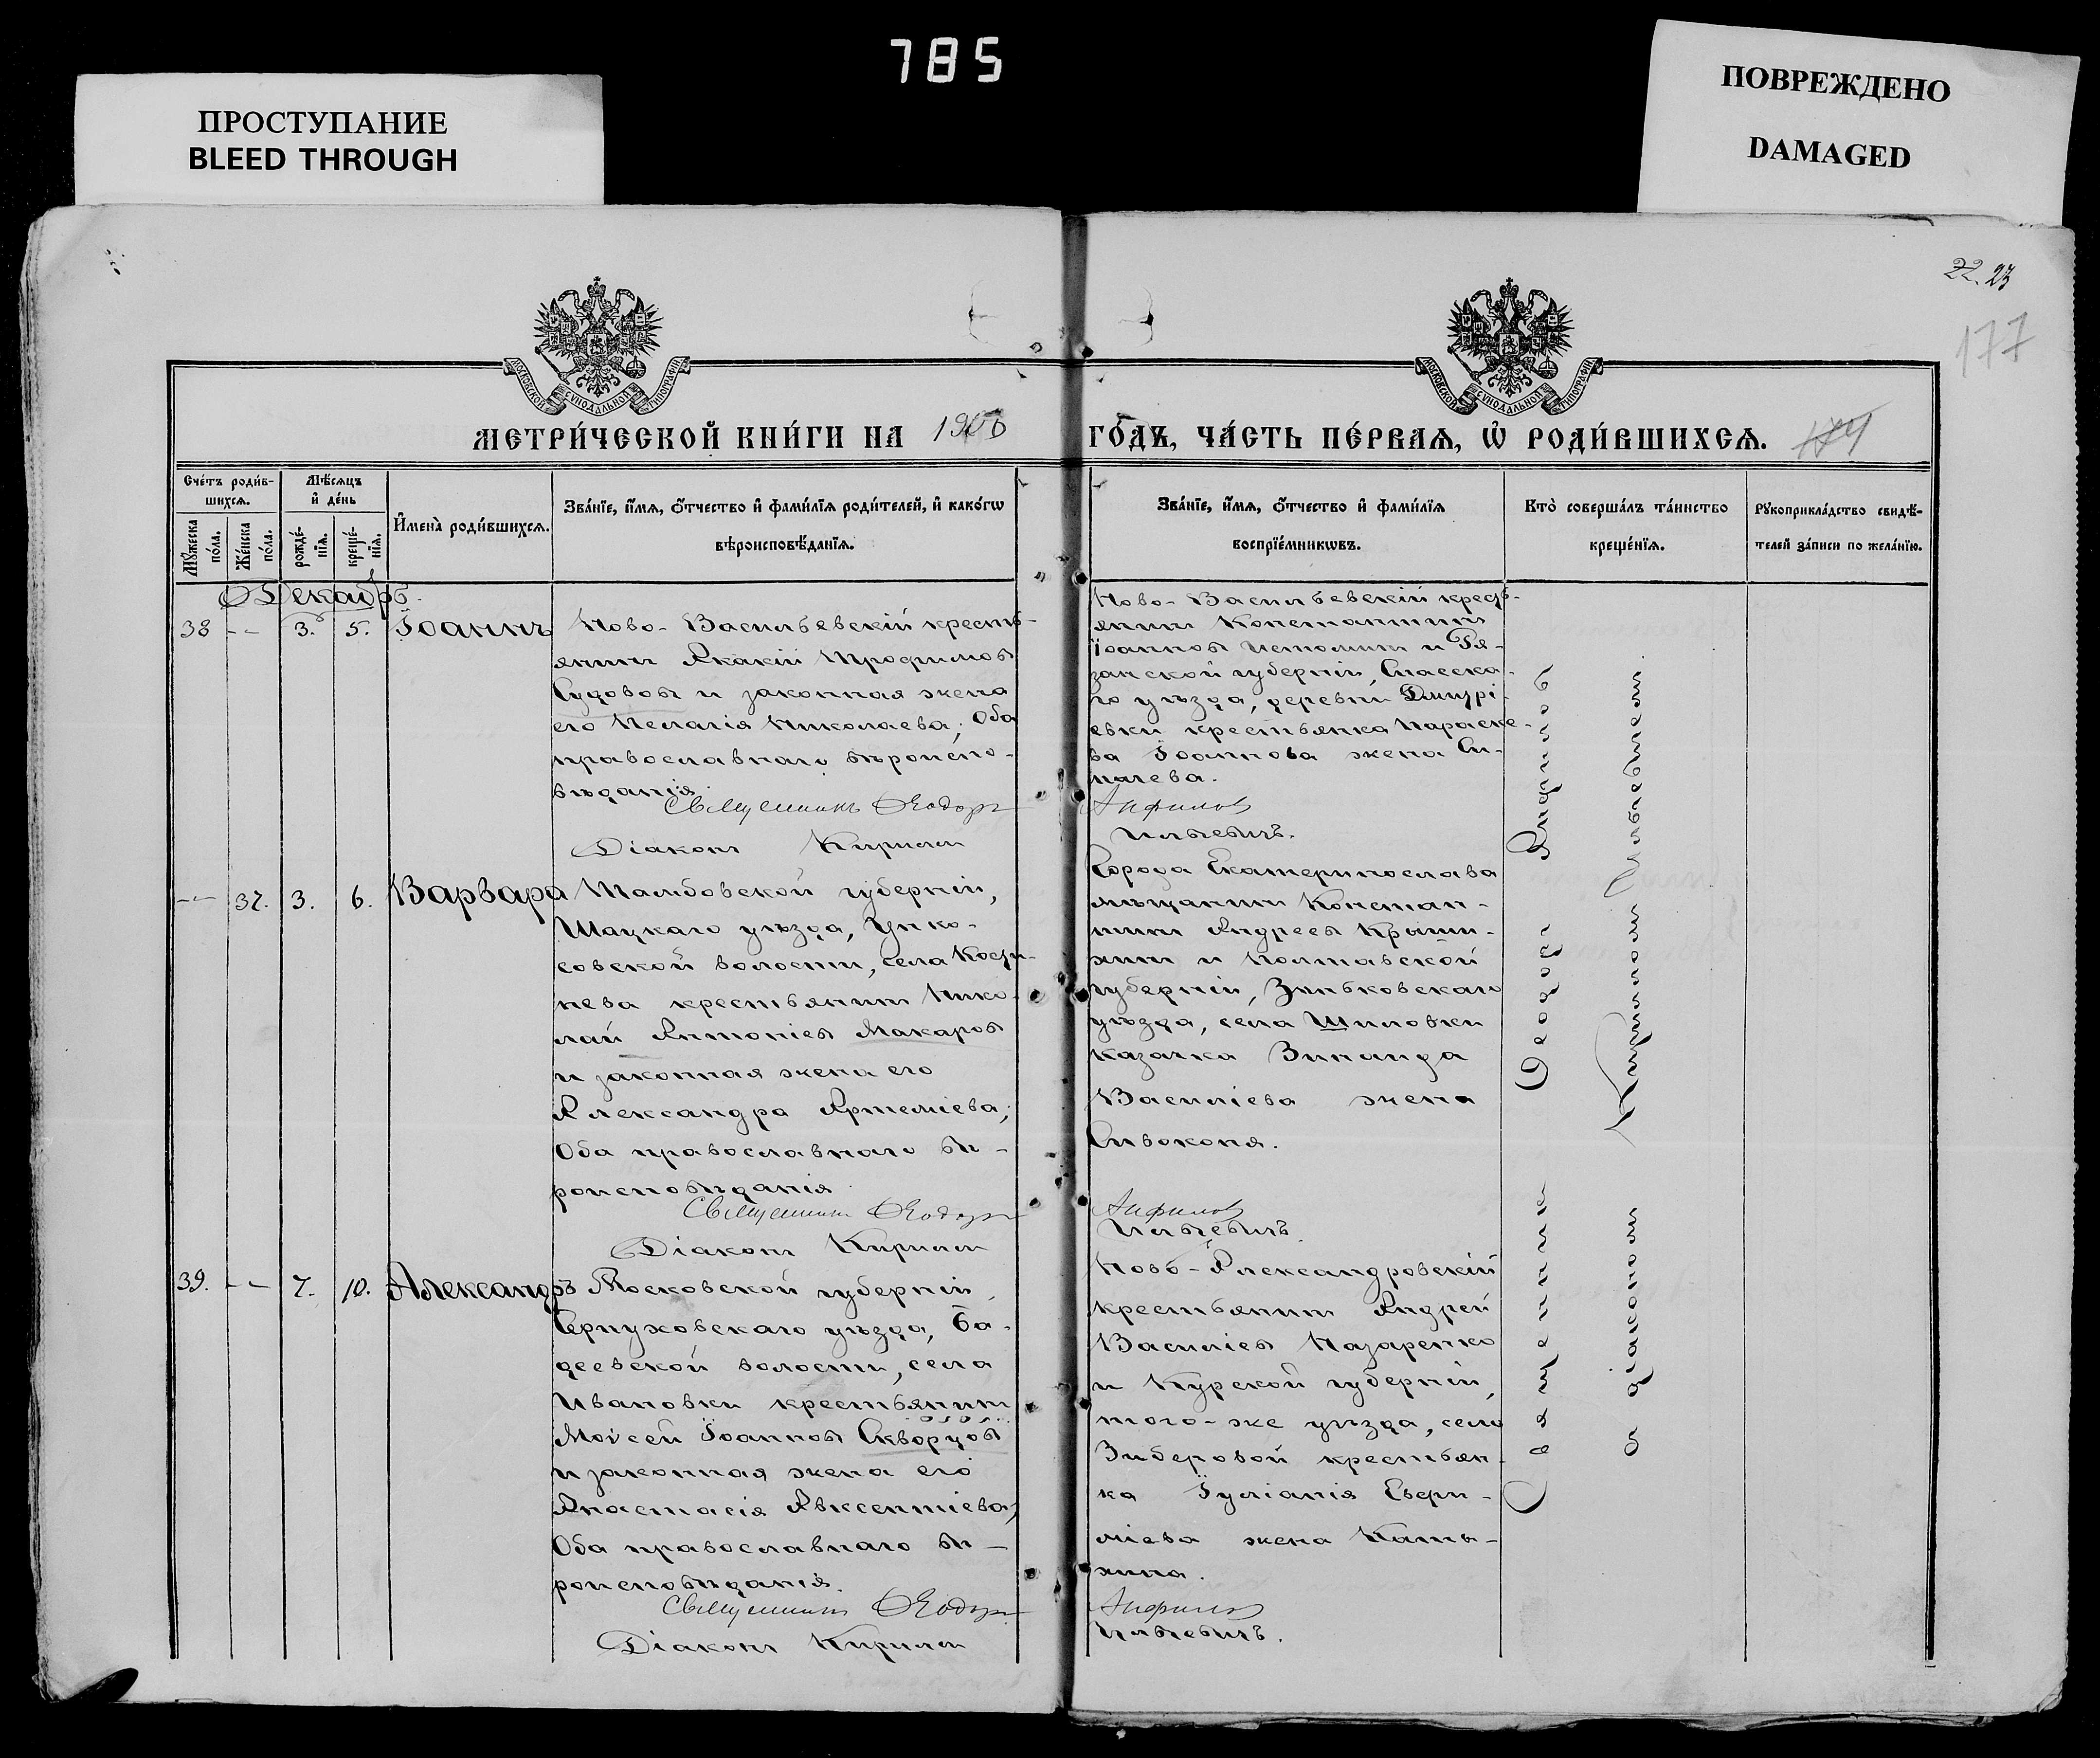 785
ПРОСТУПАНИЕ
BLEED THROUGH
ПОВРЕЖДЕНО
DAMAGED
22. 23
177
МОСКОВСКОЙ СѴНОДАЛЬНОЙ ТИПОГРАФІИ
МОСКОВСКОЙ СѴНОДАЛЬНОЙ ТИПОГРАФІИ
МЕТРИ́ЧЕСКОЙ КНИ́ГИ НА 1906
ГО́ДЪ, ЧА́СТЬ ПЕ́РВАѦ, Ѡ РОДИ́ВШИХСѦ. 174
Сче́тъ роди́в-
шихсѧ.
Мꙋ́жеска по́ла.
Же́нска по́ла.
Мѣ́сѧцъ
и де́нь
рожде́-
нїѧ.
креще́-
нїѧ.
И҆мена̀ роди́вшихсѧ.
Зва́нїе, и҆́мѧ, ѻ҆́тчество и҆ фами́лїѧ роди́телей, и҆ како́гѡ
вѣроисповѣ́данїѧ.
Зва́нїе, и҆́мѧ, ѻ҆́тчество и҆ фами́лїѧ
воспрїе́мникѡвъ.
Кто̀ соверша́лъ та́инство
креще́нїѧ.
Рꙋкоприкла́дство свидѣ́-
телей за́писи по жела́нїю.
Декабрь.
38 -- 3. 5. Іоаннъ
Ново-Васильевскій кресть-
янинъ Акакій Трофимовъ
Судовов и законная жена
его Пелагія Николаева; Оба
православнаго вѣроиспо-
вѣданія.
Священникъ Ѳеодоръ
Діаконъ Кириллъ
Ново-Васильевскій кресть-
янинъ Константинъ
Іоанновъ Истоминъ и Ря-
занской губерніи, Спасска-
го уѣзда, деревни Дмитрі-
евки крестьянка Параске-
ва Іоаннова жена Си-
Анфиловъ
Ильевичъ.
-- 37. 3. 6. Варвара
Тамбовской губерніи,
Шацкаго уѣзда,
совской волости, села
нева крестьянинъ Нико-
лай Антоніевъ Макаровъ
и законная жена его
Александра Артеміева;
Оба православнаго вѣ-
роисповѣданія.
Священникъ Ѳеодоръ
Діаконъ Кириллъ
Города Екатеринослава
мѣщанинъ Констан-
тинъ Андреевъ
и Полтавской
губерніи, Зѣньковскаго
уѣзда, села Шиловки
казачка Зинаида
Василіева жена
Сивоконя.
Анфиловъ
Ильевичъ.
39. -- 7. 10. Александръ
Московской губерніи,
Серпуховскаго уѣзда, Ба-
деевской волости, села
Ивановки крестьянинъ
Моѵсей Іоанновъ Скворцовъ
и законная жена его
Анастасія Авксентіева;
Оба православнаго вѣ-
роисповѣданія.
Священникъ Ѳеодоръ
Діаконъ Кириллъ
Ново-Александровскій
крестьянинъ Андрей
Василіевъ Назаренко
и Курской губерніи,
того-же уѣзда, села
Зиберовой крестьян-
ка Іуліанія
міева жена Каты-
хина.
Анфиловъ
Ильевичъ.
Священникъ Ѳеодоръ Анфиловъ
съ діакономъ Кирилломъ Ильевичемъ.